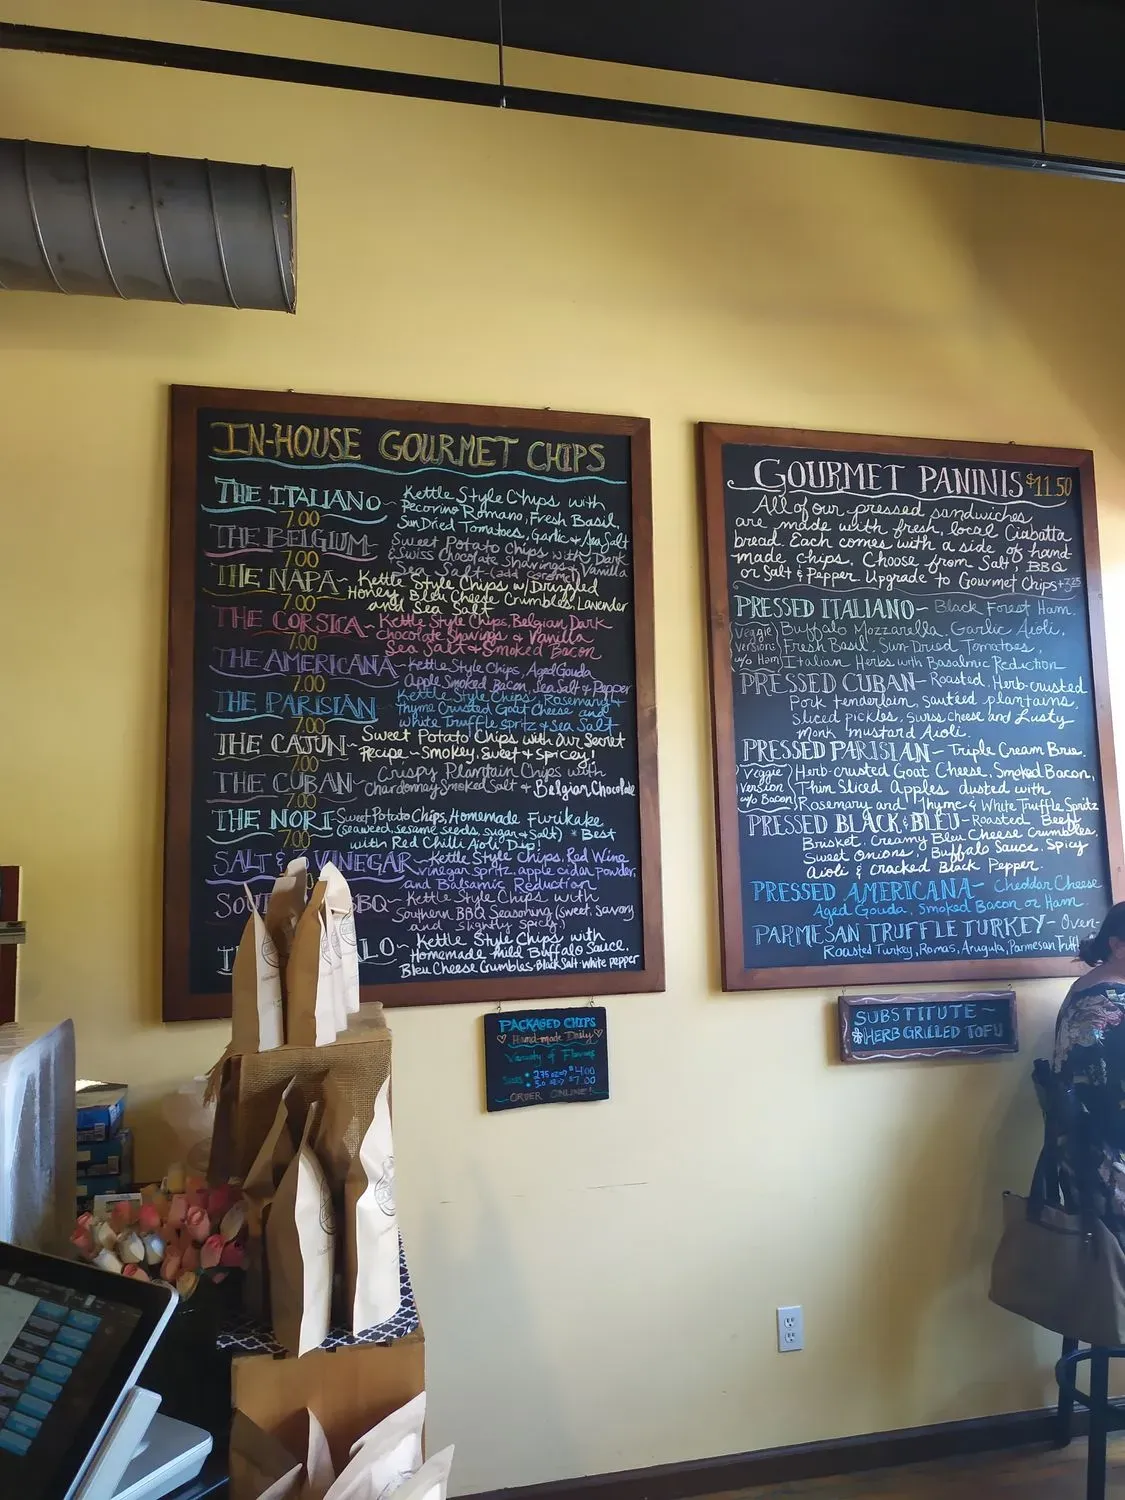 IN-HOUSE GOURMET CHIPS
THE ITALIANO ~ Kettle Style Chips with
7.00 Pecorino Romano, Fresh Basil,
Sun Dried Tomatoes, Garlic & Sea Salt
THE BELGIUM~ Sweet Potato Chips with Dark
7.00 & Swiss Chocolate Shavings & Vanilla
Sea Salt (add caramel)
THE NAPA~ Kettle Style Chips w/ Drizzled
7.00 Honey, Bleu Cheese Crumbles, Lavender
and Sea Salt
THE CORSICA~ Kettle Style Chips Belgian Dark
7.00 Chocolate Shavings & Vanilla
Sea Salt & Smoked Bacon
THE AMERICANA~ Kettle Style Chips, Aged Gouda
7.00 Apple Smoked Bacon, Sea Salt & Pepper
THE PARISIAN Kettle Style Chips, Rosemary &
7.00 Thyme Crusted Goat Cheese and
White Truffle spritz & Sea Salt
THE CAJUN~ Sweet Potato Chips with Our Secret
7.00 Recipe ~ Smokey, Sweet & Spicey!
THE CUBAN~ Crispy Plantain Chips with
7.00 Chardonnay Smoked Salt & Belgian Chocolate
THE NORI Sweet Potato Chips, Homemade Furikake
7.00 (seaweed, sesame seeds, sugar & salt) *Best
with Red Chili Aioli Dip!
SALT & VINEGAR ~ Kettle Style Chips, Red Wine
Vinegar Spritz, apple cidar powder,
and Balsamic Reduction
SOU BBQ~ Kettle Style Chips with
Southern BBQ Seasoning (Sweet, savory
and slightly spicy)
LO~ Kettle Style Chips with
Homemade Mild Buffalo Sauce,
Bleu Cheese Crumbles, Black Salt white pepper
PACKAGED CHIPS
Hand-made Daily
Variety of Flavors
Sizes: 2.75 oz $4.00
5.0 oz $7.00
ORDER ONLINE!
GOURMET PANINIS $11.50
All of our pressed sandwiches
are made with fresh, local Ciabatta
bread. Each comes with a side of hand-
made chips. Choose from Salt, BBQ
or Salt & Pepper. Upgrade to Gourmet Chips
PRESSED ITALIANO~ Black Forest Ham,
Veggie Buffalo Mozzarella, Garlic Aioli,
Version: Fresh Basil, Sun-Dried Tomatoes,
w/o Ham Italian Herbs with Basalmic Reduction
PRESSED CUBAN~ Roasted, Herb-crusted
Pork tenderloin, sautéed plantains,
sliced pickles, swiss cheese and Lusty
Monk Mustard Aioli.
PRESSED PARISIAN~ Triple Cream Brie,
Veggie Herb-crusted Goat Cheese, Smoked Bacon,
Version Thin Sliced Apples dusted with
w/o Bacon Rosemary and Thyme & White Truffle Spritz
PRESSED BLACK & BLEU~ Roasted Beef
Brisket, Creamy Bleu Cheese Crumbles,
Sweet Onions, Buffalo Sauce, Spicy
Aioli & Cracked Black Pepper.
PRESSED AMERICANA~ Cheddar Cheese
Aged Gouda, Smoked Bacon or Ham.
PARMESAN TRUFFLE TURKEY~ Oven-
Roasted Turkey, Romas, Arugula, Parmesan Truffl
SUBSTITUTE~
HERB GRILLED TOFU